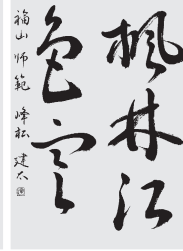 楓林江
色
福山師範 峰松 建太